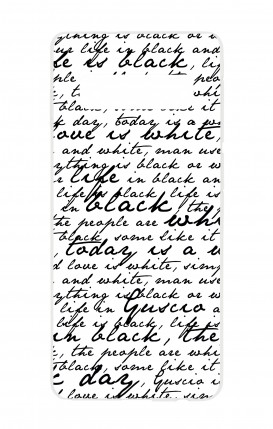 ything is black or w
life in black and
e is black, li
ple peo
e, t whi
blac it
k day, today is a wo
ove is white,
and white, man use
ything is black or w
r life in black an
life is black, life is
in black, th
the people are whi
black, some like it
, today is a w
d love is white, sim
and white, man use
ything is black or w
r life in Guscio a
life is black, life is
in black, the
, the people are whi
black, some like it
k day, Guscio i
love is white, sim